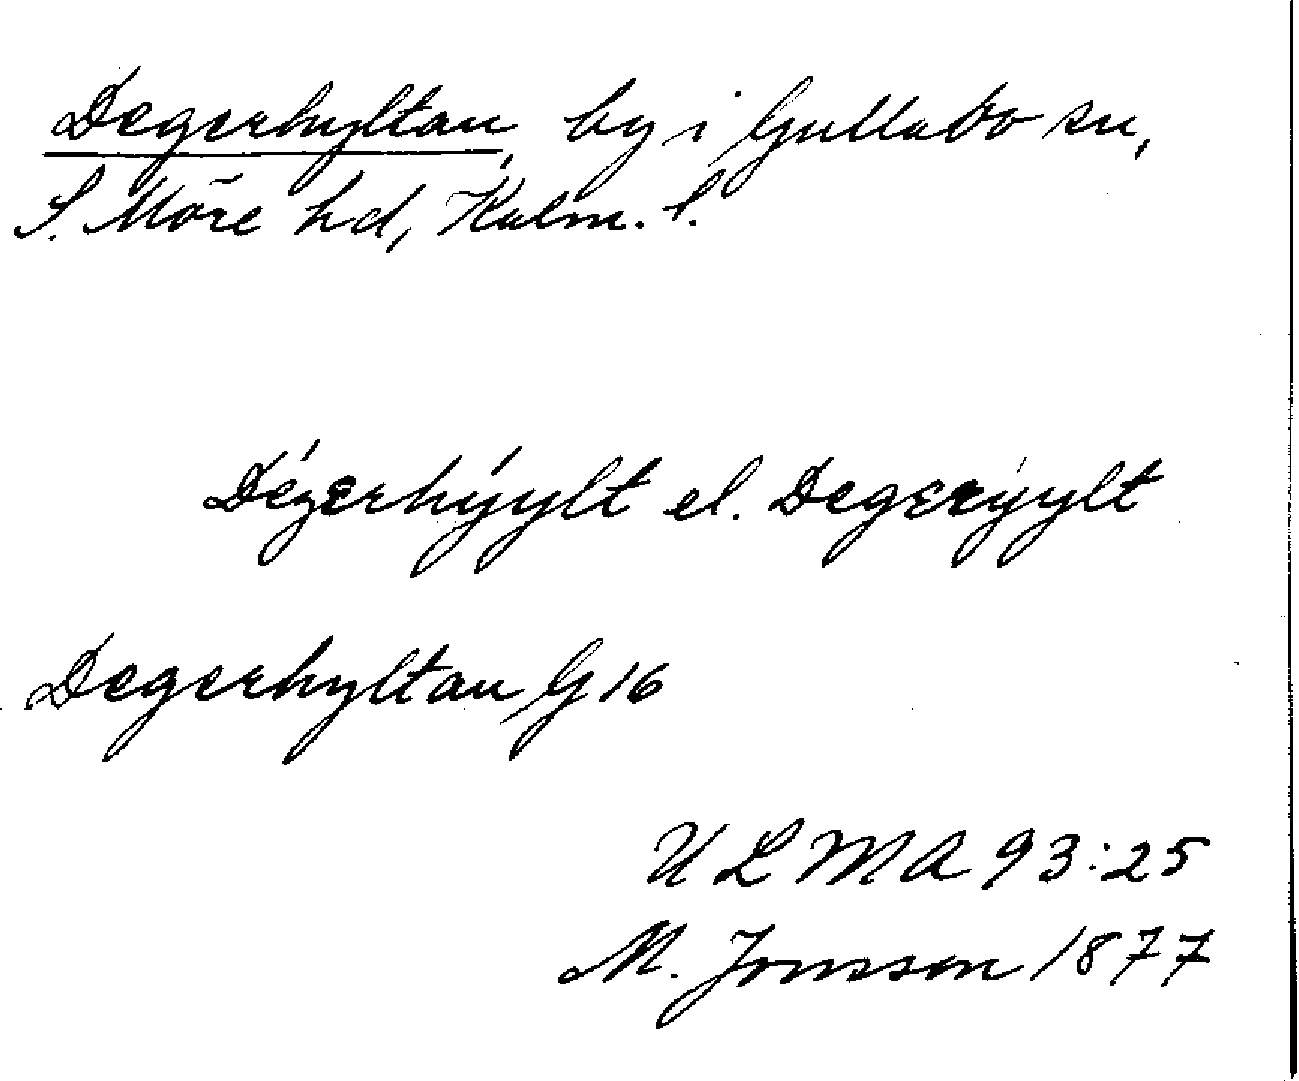 Degerhyltan, by i Gullabo sn,
S. Möre hd, Kalm. l.
Dégerhýylt el. Degerýylt
Degerhyltan G 16
ULMA 93:25
M. Jonsson 1877